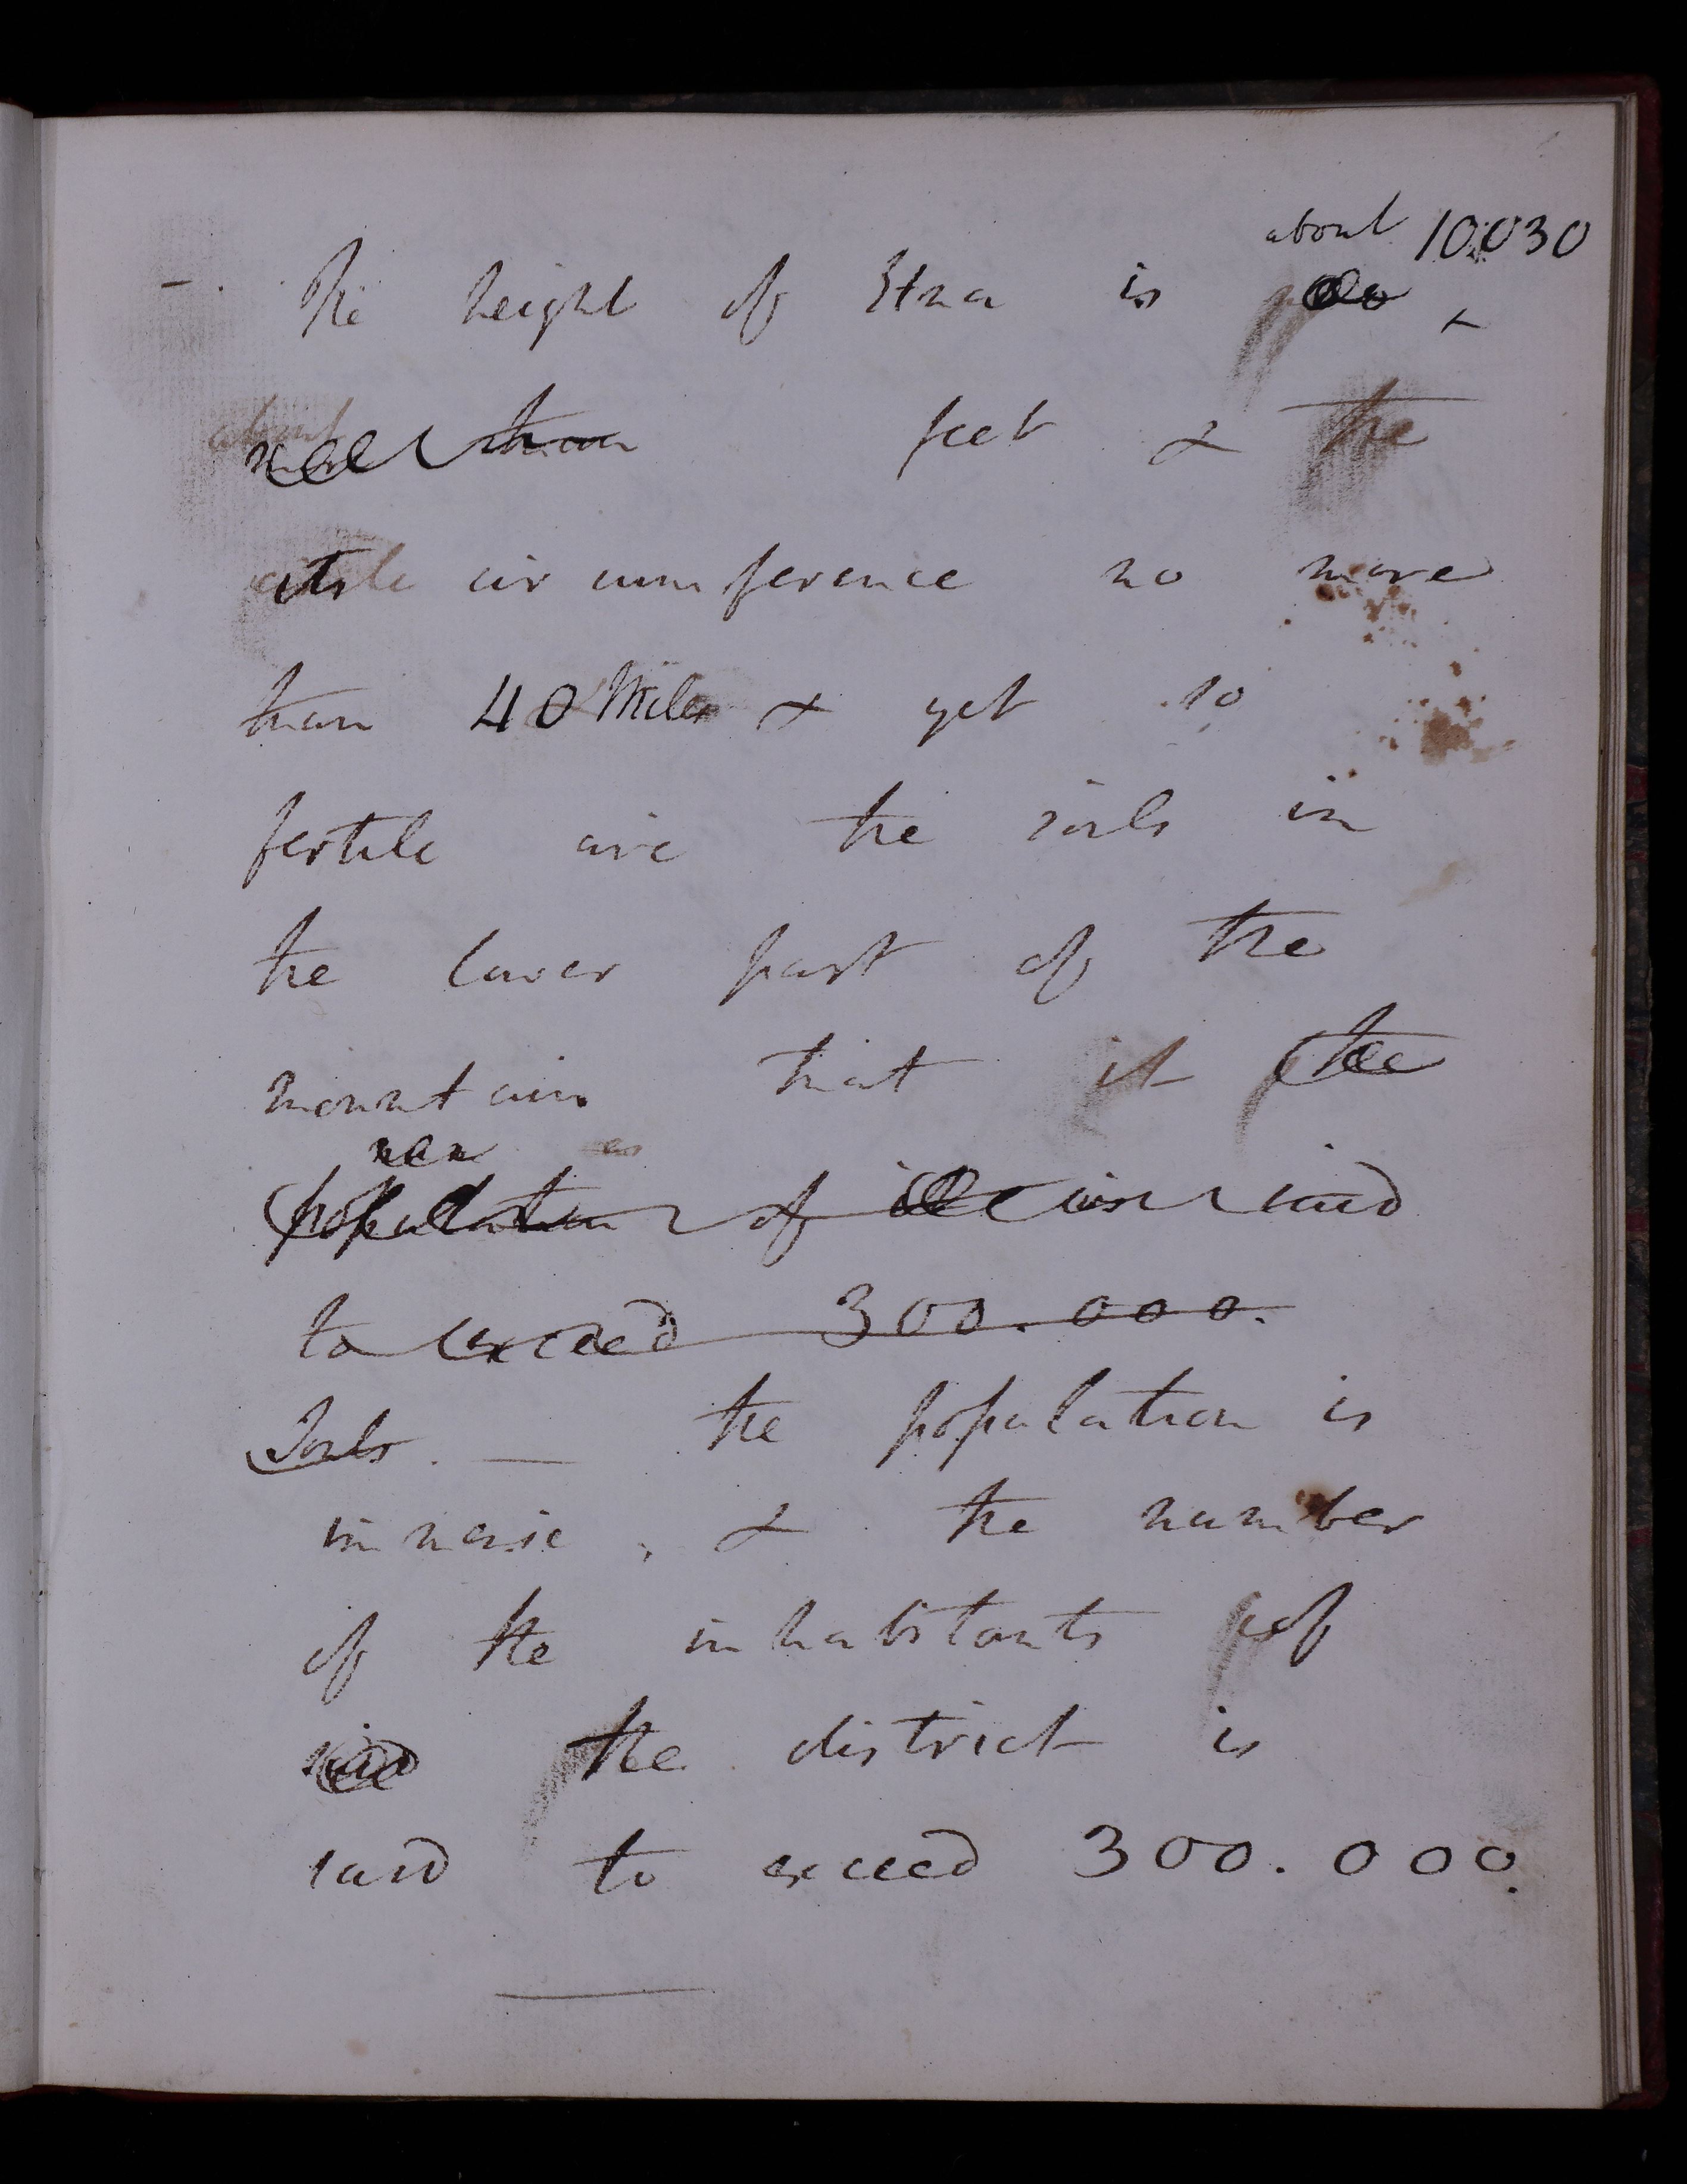 about 10.030
-. The height of Etna is no
less than feet & the
its circumference no more
than 40 Miles & yet so
fertile are the soils in
the lower part of the
mountain that it the
population of is said
to exceed 300.000.
Souls. — the population is
immense, & the number
of the inhabitants of
the district is
said to exceed 300.000.